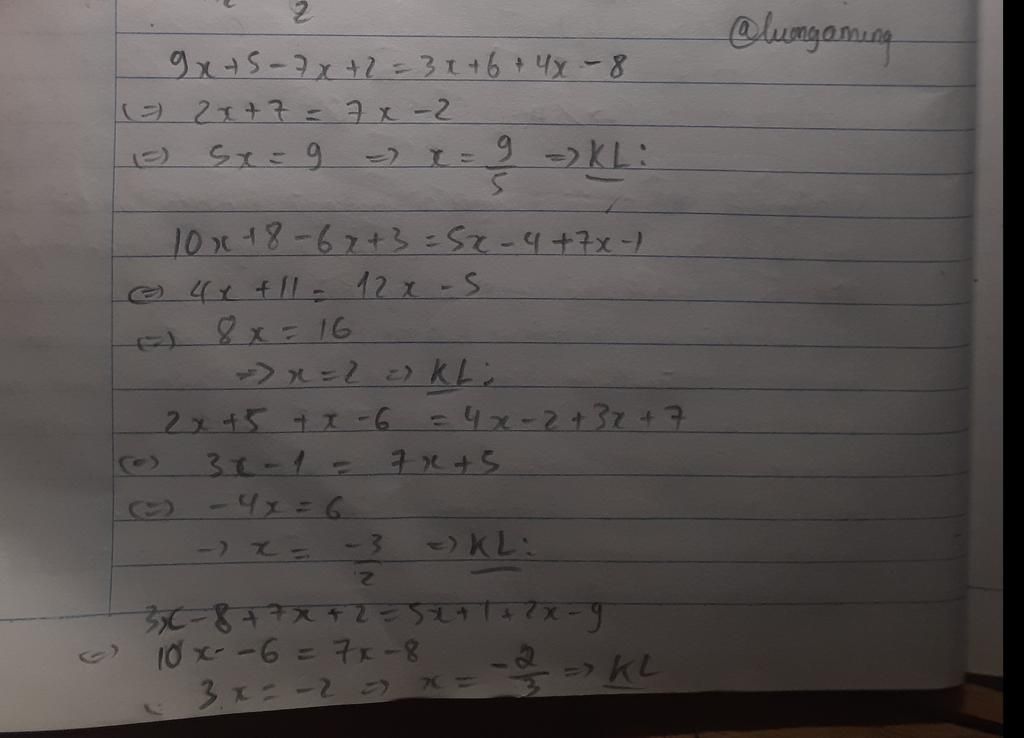 2
@luongaming
9x+5-7x+2=3x+6+4x-8
(=) 2x+7 = 7x-2
(=) 5x = 9 => x = 9/5 => KL:
10x+8-6x+3=5x-4+7x-1
(=) 4x+11= 12x-5
(=) 8x = 16
=> x=2 => KL:
2x+5 +x-6 =4x-2+3x+7
(=) 3x-1 = 7x+5
(=) -4x=6
-> x = -3/2 => KL:
3x-8+7x+2=5x+1+2x-9
(=) 10x--6 = 7x-8
3x=-2 => x = -2/3 => KL